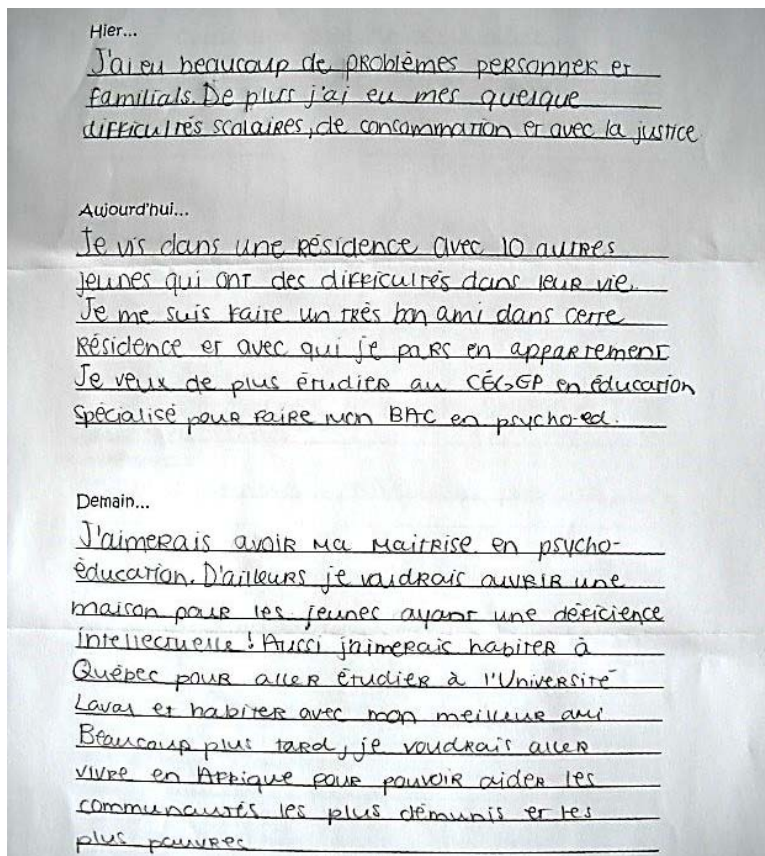 Hier...
J'ai eu beaucoup de problèmes personnek et
familials. De plus j'ai eu mes quelque
difficultés scolaires, de consommation et avec la justice
Aujourd'hui...
Je vis dans une résidence avec 10 autres
jeunes qui ont des difficultés dans leur vie.
Je me suis faite un très bon ami dans cette
résidence et avec qui je pars en appartement
Je veux de plus étudier au CÉGEP en éducation
spécialisé pour faire mon BAC en psycho-ed.
Demain...
J'aimerais avoir ma maitrise en psycho-
éducation. D'ailleurs je voudrais ouvrir une
maison pour les jeunes ayant une déficience
intellectuelle! Aussi j'aimerais habiter à
Québec pour aller étudier à l'Université
Laval et habiter avec mon meilleur ami
Beaucoup plus tard, je voudrais aller
vivre en Afrique pour pouvoir aider les
communautés les plus démunis et les
plus pauvres